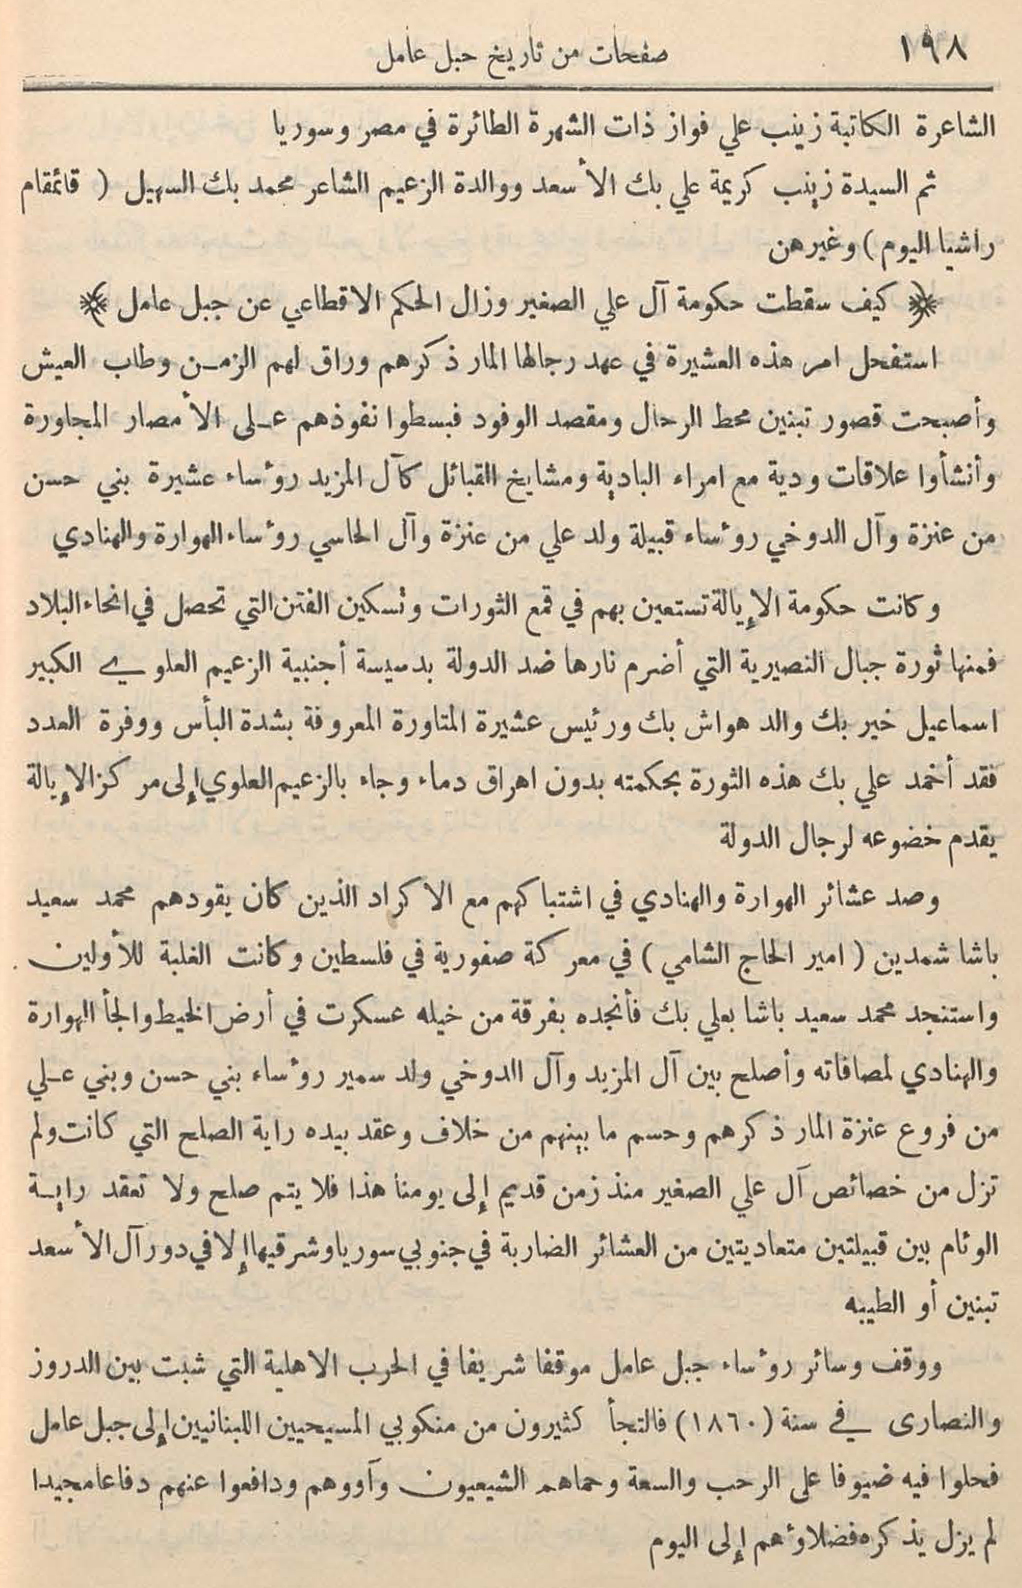 ١٩٨
صفحات من تاريخ جبل عامل
الشاعرة الكاتبة زينب علي فواز ذات الشهرة الطائرة في مصر وسوريا
ثم السيدة زينب كريمة علي بك الأسعد ووالدة الزعيم الشاعر محمد بك السهيل ( قائمقام
راشيا اليوم ) وغيرهن
﴿ كيف سقطت حكومة آل علي الصغير وزال الحكم الاقطاعي عن جبل عامل ﴾
استفحل امر هذه العشيرة في عهد رجالها المار ذكرهم وراق لهم الزمـن وطاب العيش
وأصبحت قصور تبنين محط الرحال ومقصد الوفود فبسطوا نفوذهم عـلى الأمصار المجاورة
وأنشأوا علاقات ودية مع امراء البادية ومشايخ القبائل كآل المزيد رؤساء عشيرة بني حسن
من عنزة وآل الدوخي رؤساء قبيلة ولد علي من عنزة وآل الحاسي رؤساء الهوارة والهنادي
وكانت حكومة الإيالة تستعين بهم في قمع الثورات وتسكين الفتن التي تحصل في انحاء البلاد
فمنها ثورة جبال النصيرية التي أضرم نارها ضد الدولة بدسيسة أجنبية الزعيم العلوي الكبير
اسماعيل خير بك والد هواش بك ورئيس عشيرة المتاورة المعروفة بشدة البأس ووفرة العدد
فقد أخمد علي بك هذه الثورة بحكمته بدون اهراق دماء وجاء بالزعيم العلوي إلى مركز الإيالة
يقدم خضوعه لرجال الدولة
وصد عشائر الهوارة والهنادي في اشتباكهم مع الاكراد الذين كان يقودهم محمد سعيد
باشا شمدين ( امير الحاج الشامي ) في معركة صفورية في فلسطين وكانت الغلبة للأولين .
واستنجد محمد سعيد باشا بعلي بك فأنجده بفرقة من خيله عسكرت في أرض الخيط والجأ الهوارة
والهنادي لمصافاته وأصلح بين آل المزيد وآل الدوخي ولد سمير رؤساء بني حسن وبني عـلي
من فروع عنزة المار ذكرهم وحسم ما بينهم من خلاف وعقد بيده راية الصلح التي كانت ولم
تزل من خصائص آل علي الصغير منذ زمن قديم إلى يومنا هذا فلا يتم صلح ولا تعقد رايـة
الوئام بين قبيلتين متعاديتين من العشائر الضاربة في جنوبي سوريا وشرقيها إلا في دور آل الأسعد
تبنين أو الطيبه
ووقف وسائر رؤساء جبل عامل موقفا شريفا في الحرب الاهلية التي شبت بين الدروز
والنصارى في سنة ( ١٨٦٠ ) فالتجأ كثيرون من منكوبي المسيحيين اللبنانيين إلى جبل عامل
فحلوا فيه ضيوفا على الرحب والسعة وحماهم الشيعيون وآووهم ودافعوا عنهم دفاعا مجيدا
لم يزل يذكره فضلاؤهم إلى اليوم